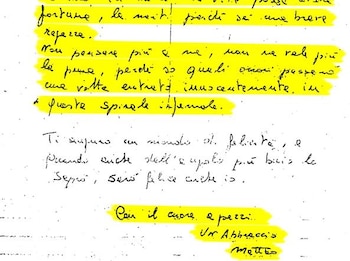 fortuna, la meriti perché sei una brava
ragazza.
Non pensare più a me, non ne vale più
la pena, perché so quali orrori passano
una volta entrati innocentemente in
questa spirale infernale.
Ti auguro un mondo di felicità, e
quando anche dall'angolo più buio lo
saprò, sarò felice anche io.
Con il cuore a pezzi
Un Abbraccio
Matteo